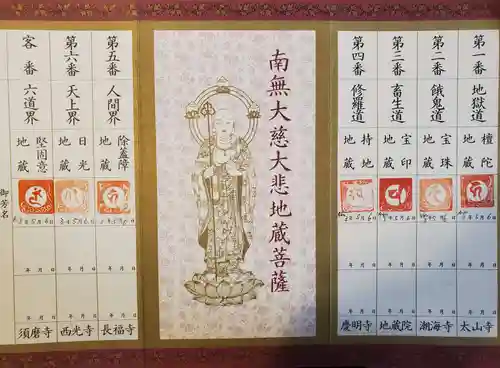 第一番
地獄道
檀陀
地蔵
年月日
太山寺
第二番
餓鬼道
宝珠
地蔵
年月日
潮海寺
第三番
畜生道
宝印
地蔵
年月日
地蔵院
第四番
修羅道
持地
地蔵
年月日
慶明寺
南無大慈大悲地蔵菩薩
第五番
人間界
除蓋障
地蔵
年月日
長福寺
第六番
天上界
日光
地蔵
年月日
西光寺
客番
六道界
堅固意
地蔵
年月日
須磨寺
御芳名